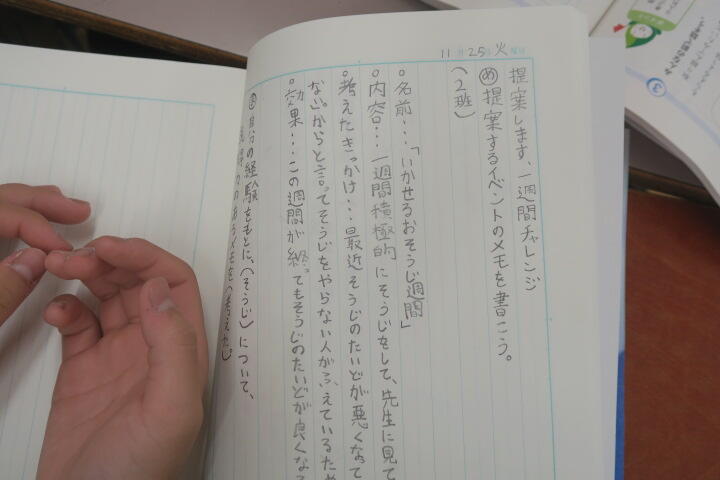 11月25日火曜日
提案します、一週間チャレンジ
め 提案するイベントのメモを書こう。
(2班)
○名前…「いかせるおそうじ週間」
○内容…一週間積極的にそうじをして、先生に見て
○考えたきっかけ…最近そうじのたいどが悪くなって
ない。からと言ってそうじをやらない人がふえているため
○効果…この週間が終ってもそうじのたいどが良くなる
自分の経験をもとに、(そうじ)について、
のあるメモを(考えた)。